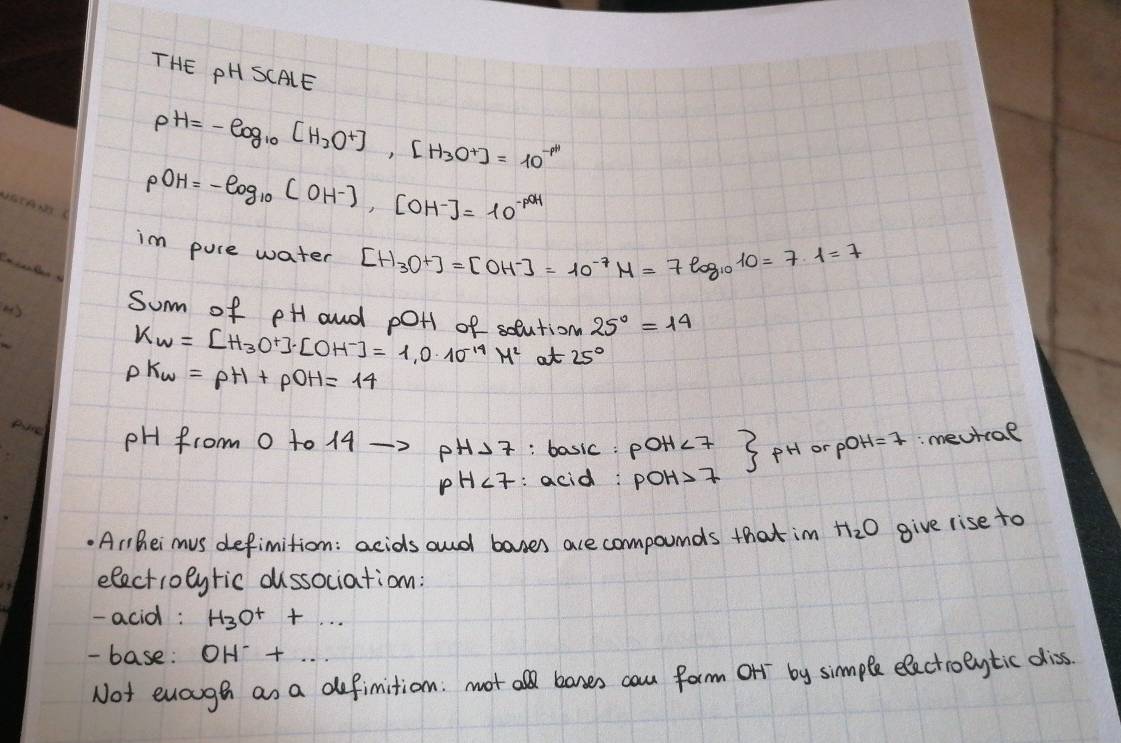 THE pH SCALE
pH = -log₁₀ [H₃O⁺] , [H₃O⁺] = 10^-pH
pOH = -log₁₀ [OH⁻] , [OH⁻] = 10^-pOH
in pure water [H₃O⁺] = [OH⁻] = 10⁻⁷ M = 7 log₁₀ 10 = 7 · 1 = 7
Sum of pH and pOH of solution 25° = 14
Kw = [H₃O⁺]·[OH⁻] = 1,0 · 10⁻¹⁴ M² at 25°
pKw = pH + pOH = 14
pH from 0 to 14 → pH > 7 : basic : pOH < 7 } pH or pOH = 7 : neutral
pH < 7 : acid : pOH > 7
• Arrheinus definition: acids and bases are compounds that in H₂O give rise to
electrolytic dissociation:
- acid : H₃O⁺ + ...
- base : OH⁻ + ...
Not enough as a definition: not all bases can form OH⁻ by simple electrolytic diss.